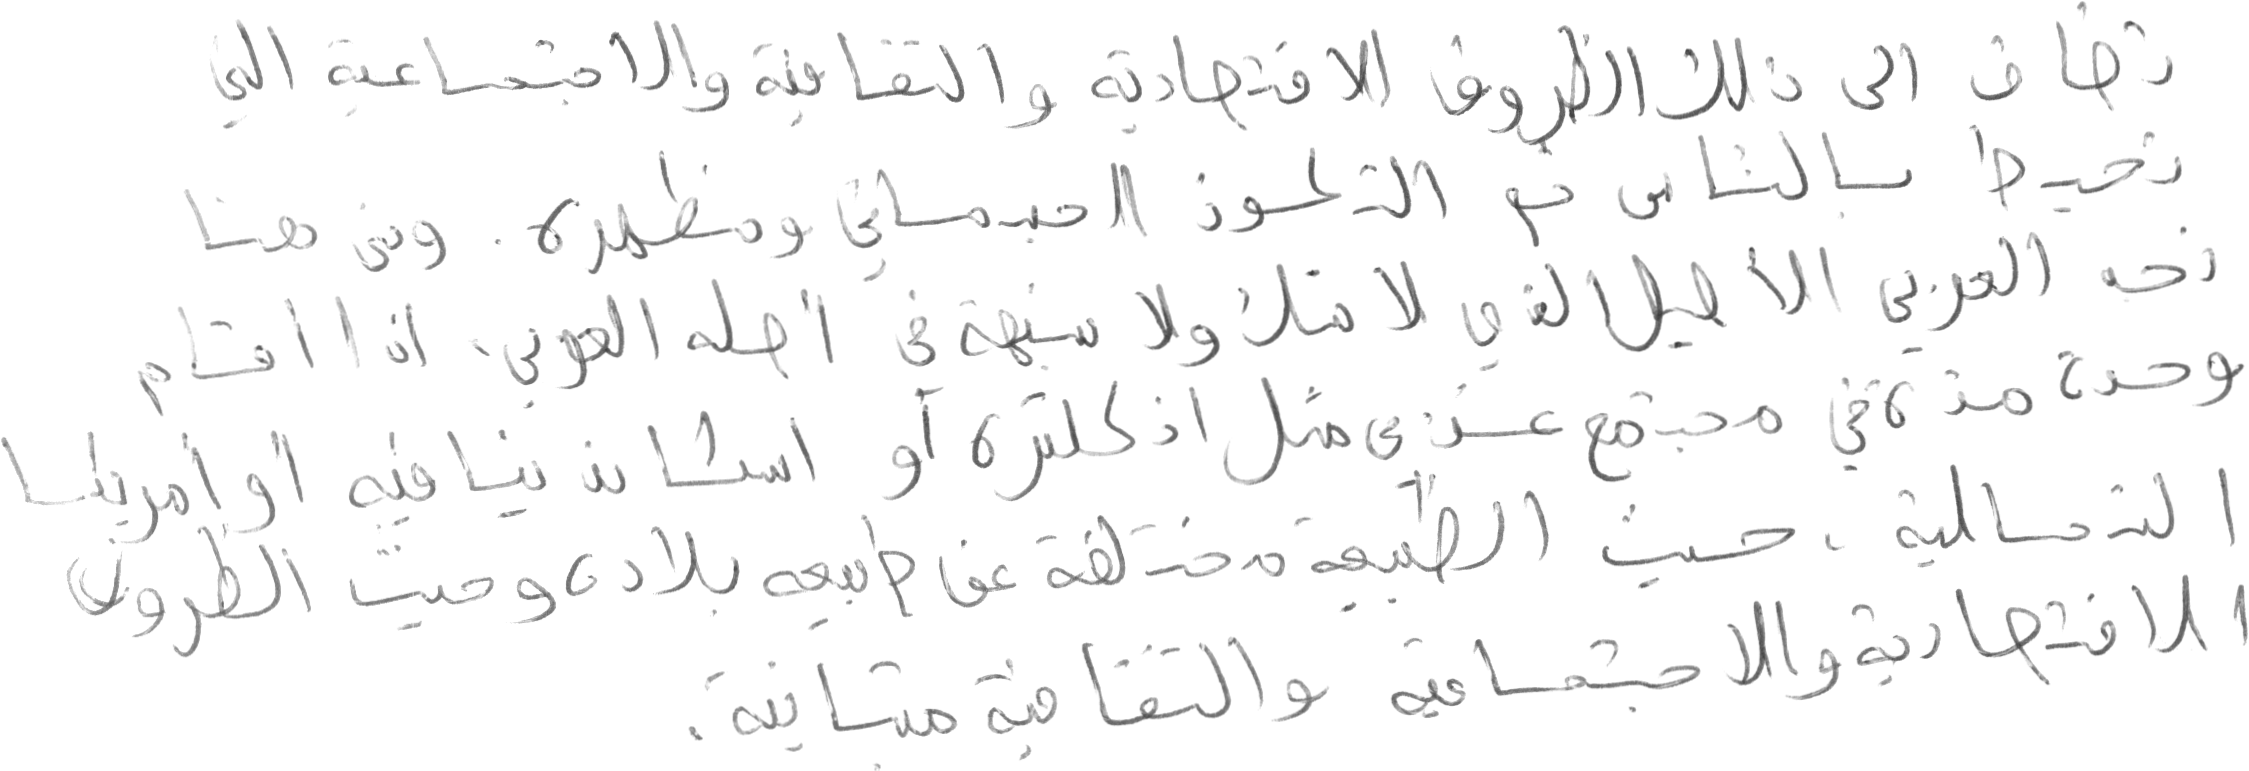 تضاف الى ذلك الظروف الاقتصادية والثقافية والاجتماعية التي
تحيط بالناس مع التلحوذ الجدماني ومظهره. ومن هنا
نجد العربي الأصيل لذي لا شك ولا شبهة في أصله العربي، اذا اقام
وحدة مدة في مجتمع غربي مثل انكلترة أو اسكاندينافيه أو أمريكا
الشمالية، حيث الطبيعة مختلفة عن طبيعه بلاده وحيث الظروف
الاقتصادية والاجتماعية والثقافية متباينة.